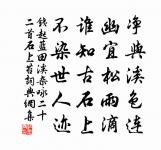 净與溪色連
幽宜松雨滴
誰知古石上
不染世人迹
錢起藍田溪杂咏二十
二首石上苔詞典網集